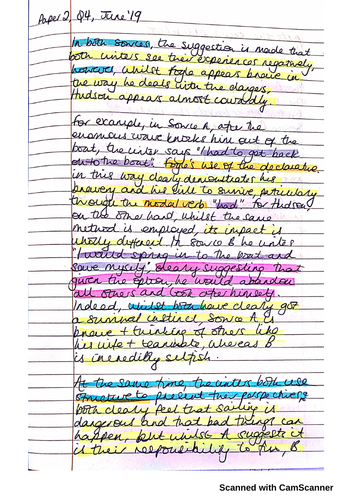 Paper 2, Q4, June '19
In both Sources, the suggestion is made that
both writers see their experiences negatively,
however, whilst Fogle appears brave in
the way he deals with the danger,
Hudson appears almost cowardly.
For example, in Source A, after the
enormous wave knocks him out of the
boat, the writer says "I had to get back
onto the boat". Fogle's use of the declarative
in this way clearly demonstrates his
bravery and his will to survive, particularly
through the modal verb "had". For Hudson
on the other hand, whilst the same
method is employed, its impact is
wholly different. In Source B he writes
"I would spring in to the boat and
save myself", clearly suggesting that
given the option, he would abandon
all others and look after himself.
Indeed, whilst both have clearly got
a survival instinct, Source A is
brave + thinking of others like
his wife + teammate, whereas B
is incredibly selfish.
At the same time, the writers both use
structure to present their perspectives:
both clearly feel that sailing is
dangerous and that bad things can
happen, but whilst A suggests it
is their responsibility to fix, B
Scanned with CamScanner